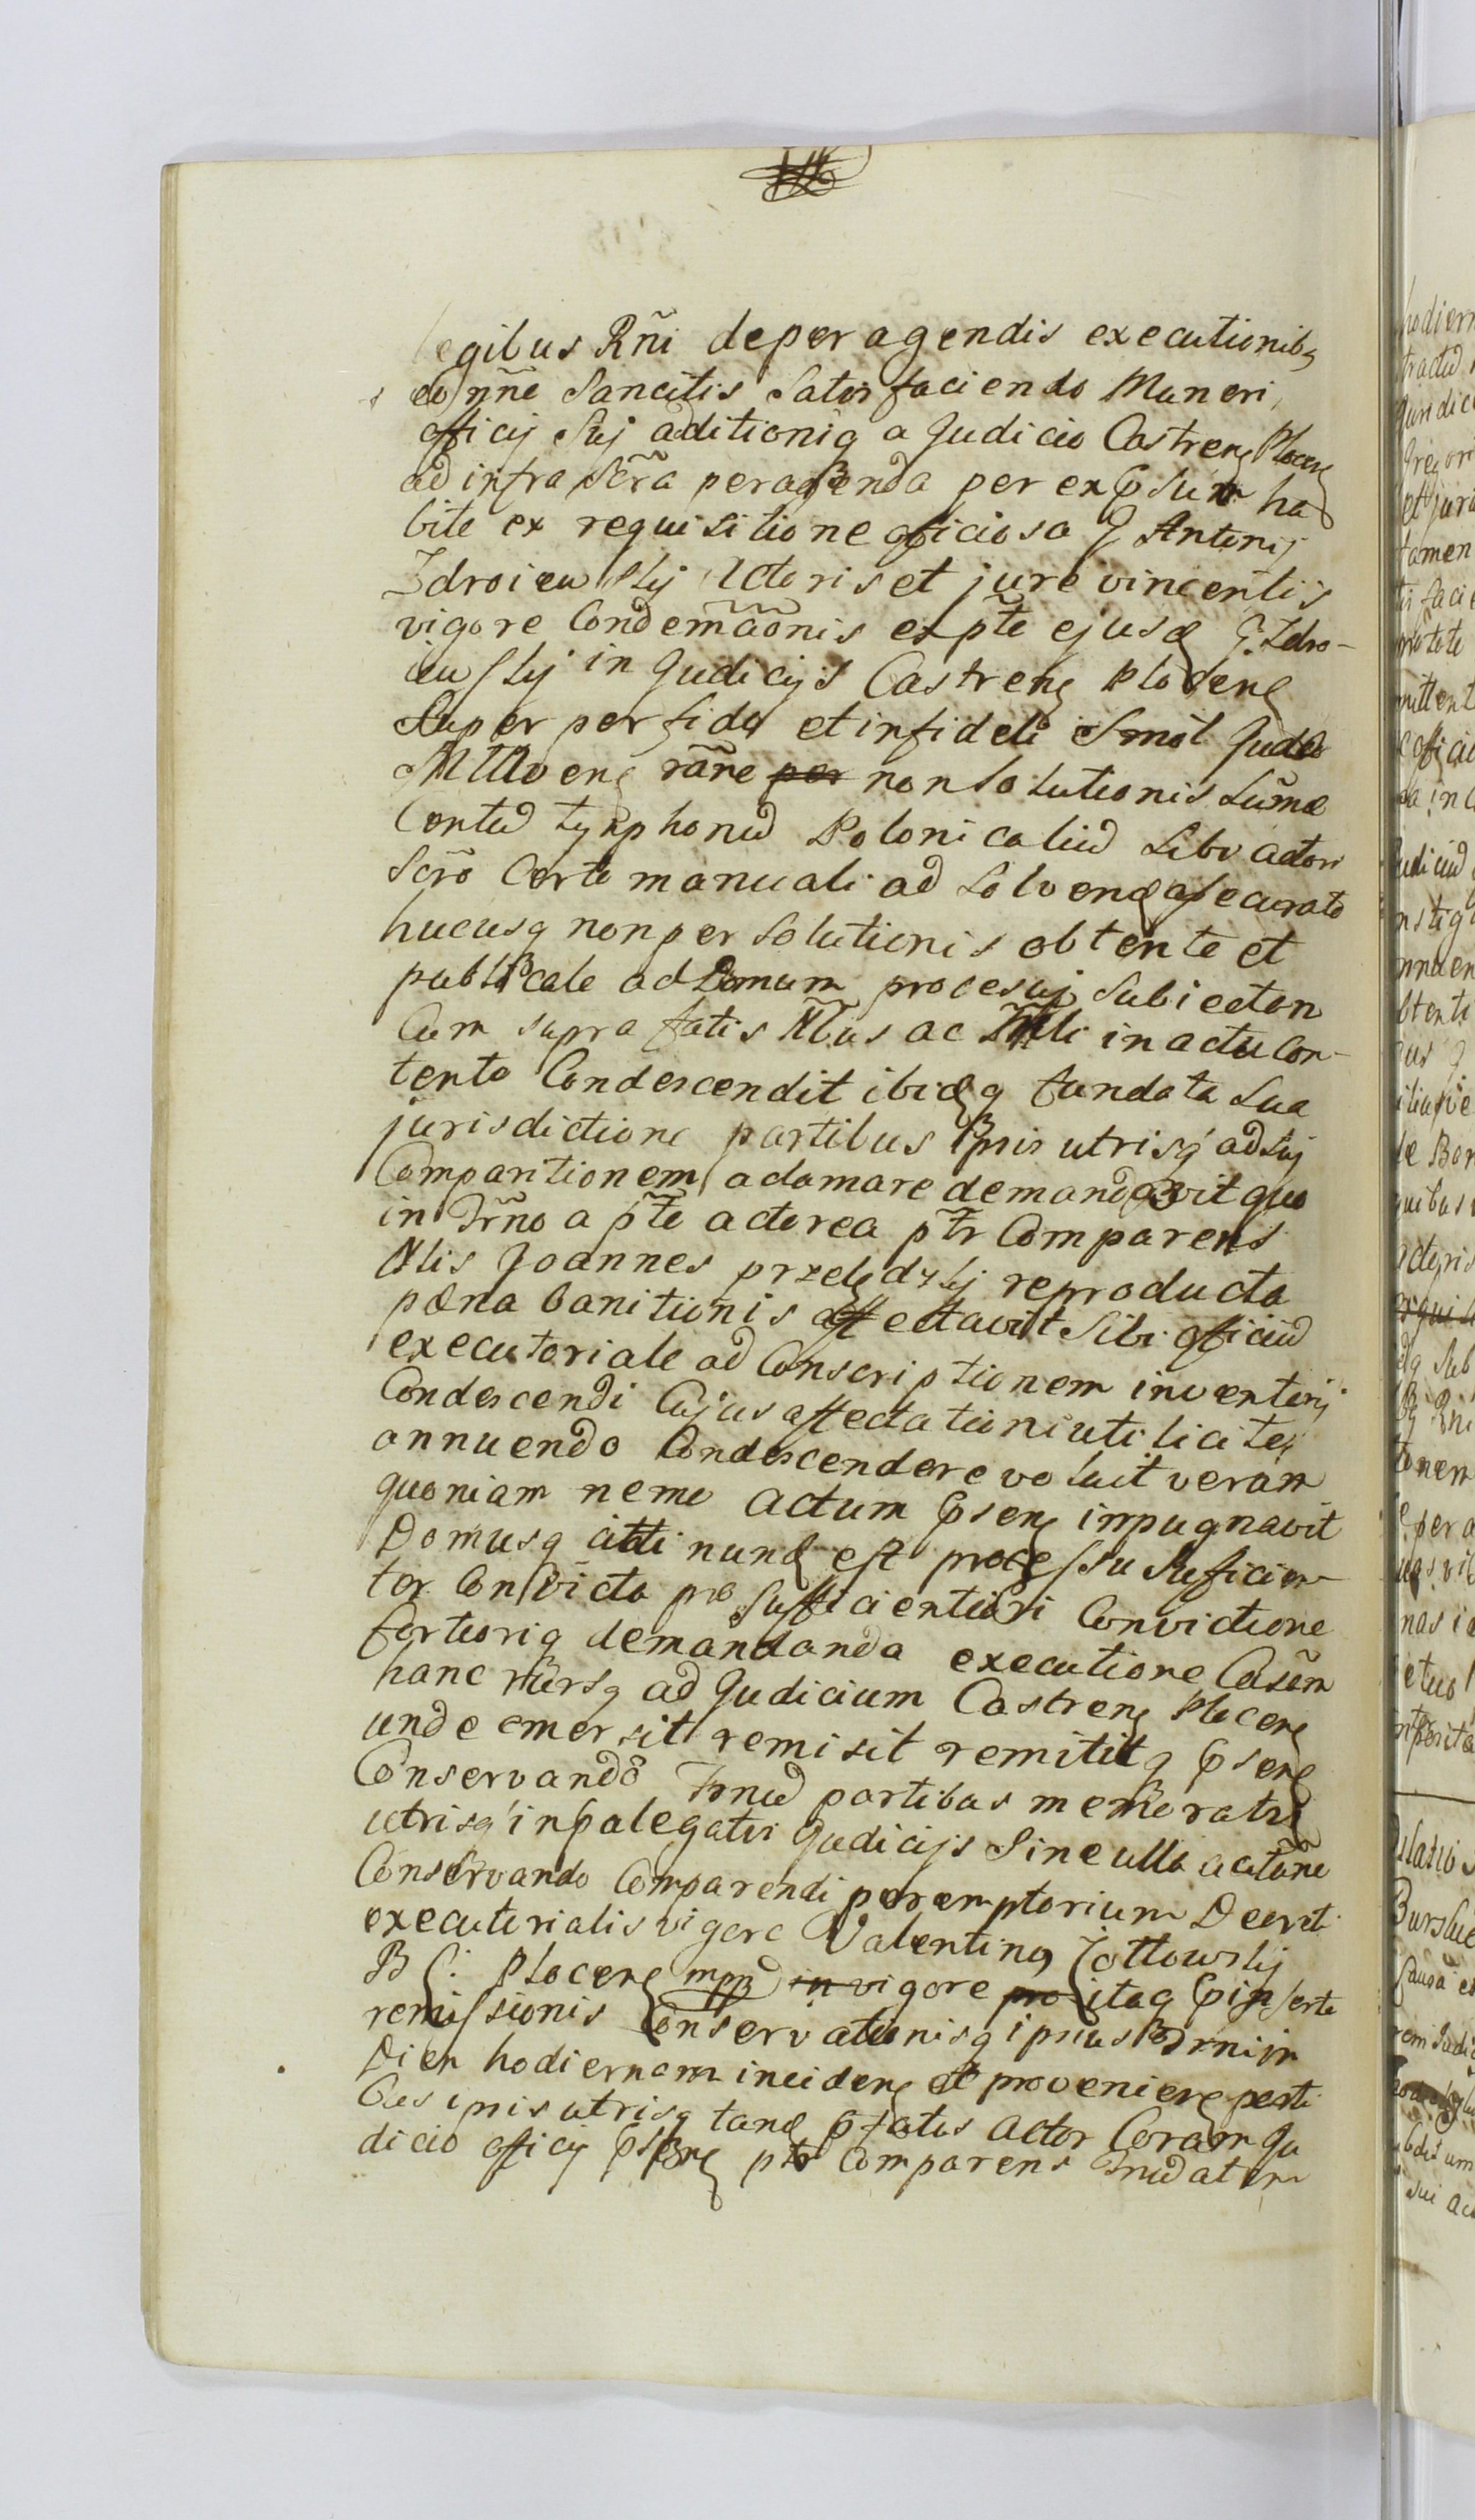 legibus Rñi de per agendis executionibꝫ
eo nñe Sancitis Satisfaciendo Muneri
officij Suj aditioniq a Judicio Castrenꝭ Plocenꝭ
ad infra Scrã peragenda per expsum ha
bite ex requisitione officiosa G Antonij
Zdroiewskj Actoris et jure vincentis
vigore Condemãõnis ex pte ejusd G. Zdro-
iewskj in Judicijs Castrenꝭ Plocenꝭ
Super perfido et infideli Smol Judeo
Mllavenꝭ rãne per non Solutionis Sum̃æ
Centu tynphonu Polonicaliu Libro actori
Scrõ Certe manuali ad Solvend assecurato
hucusq non per Solutionis obtente et
publicale ad Domum procesuj Subiectan
Cum supra fatis Nllus ac in actu Con-
tento Condescendit ibidq fundata Sua
jurisdictione partibus ipsis utrisq ad Suj
Comparitionem adamare demandavit quo
in Trño a pte actorea ptr Comparens
Nlis Joannes przeledzkj reproducta
pœna banitionis affectavit Sibi officiu
executoriale ad Conscriptionem inventorij
Condescendi Cujus affectationi uti licite
annuendo Condescendere voluit veram
quoniam nemo actum psenꝭ impugnavit
Domusq nund est processu Suficien-
ter Convicta pro Sufficientiori Convictione
fortioriq demandanda executione Casum
hanc rursq ad Judicium Castrenꝭ Plocenꝭ
unde emersit remisit remititq psenꝭ
Conservando Trnu partibus memoratis
utrisq in palegatis Judicijs Sine ulla actõne
Conservando Comparendi peremptorium Decrti
executorialis vigore Valentinꝰ Zottowskj
B C. Plocenꝭ mpp in vigore pro itaq pinserte
remissionis Conservationisq ipsius Trni in
Diem hodiernam incidenꝭ et provenienꝭ parti
bus ipsis utrisq tand pfatus actor Coram Ju
dicio officij psenꝭ ptr Comparens Trnu attent